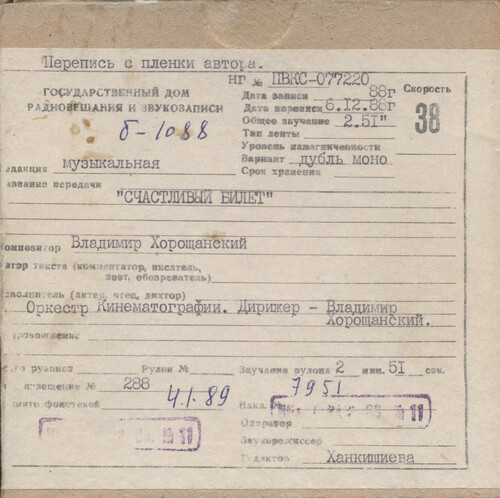 Перепись с пленки автора.
НГ № ПВКС-077220
ГОСУДАРСТВЕННЫЙ ДОМ
РАДИОВЕЩАНИЯ И ЗВУКОЗАПИСИ
Дата записи 88г
Скорость
Дата переписи 6.I2.88г
38
Общее звучание 2.5I"
б-1088
Тип ленты
Уровень намагниченности
едакция музыкальная
Вариант дубль моно
Срок хранения
азвание передачи
"СЧАСТЛИВЫЙ БИЛЕТ"
омпозитор Владимир Хорощанский
втор текста (комментатор, писатель,
поэт, обозреватель)
сполнитель (актер, чтец, диктор)
Оркестр Кинематографии. Дирижер - Владимир
Хорощанский.
провождение
ство рулонов Рулон № Звучание рулона 2 мин. 5I сек.
звещение № 288
4.1.89
7951
фонотекой
Накл.
11
Оператор
11
Звукорежиссер
Редактор Ханкишиева